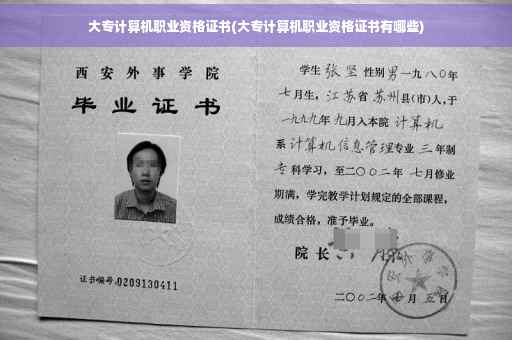 大专计算机职业资格证书(大专计算机职业资格证书有哪些)
西安外事学院
毕业证书
证书编号:0209130411
学生 张坚 性别 男 一九八〇年
七月生，江苏省 苏州县(市)人,于
一九九九年 九月入本院 计算机
系 计算机信息管理专业 三 年制
专 科学习，至二〇〇二年 七月修业
期满，学完教学计划规定的全部课程，
成绩合格，准予毕业。
院长
二〇〇二年 七 月 五 日